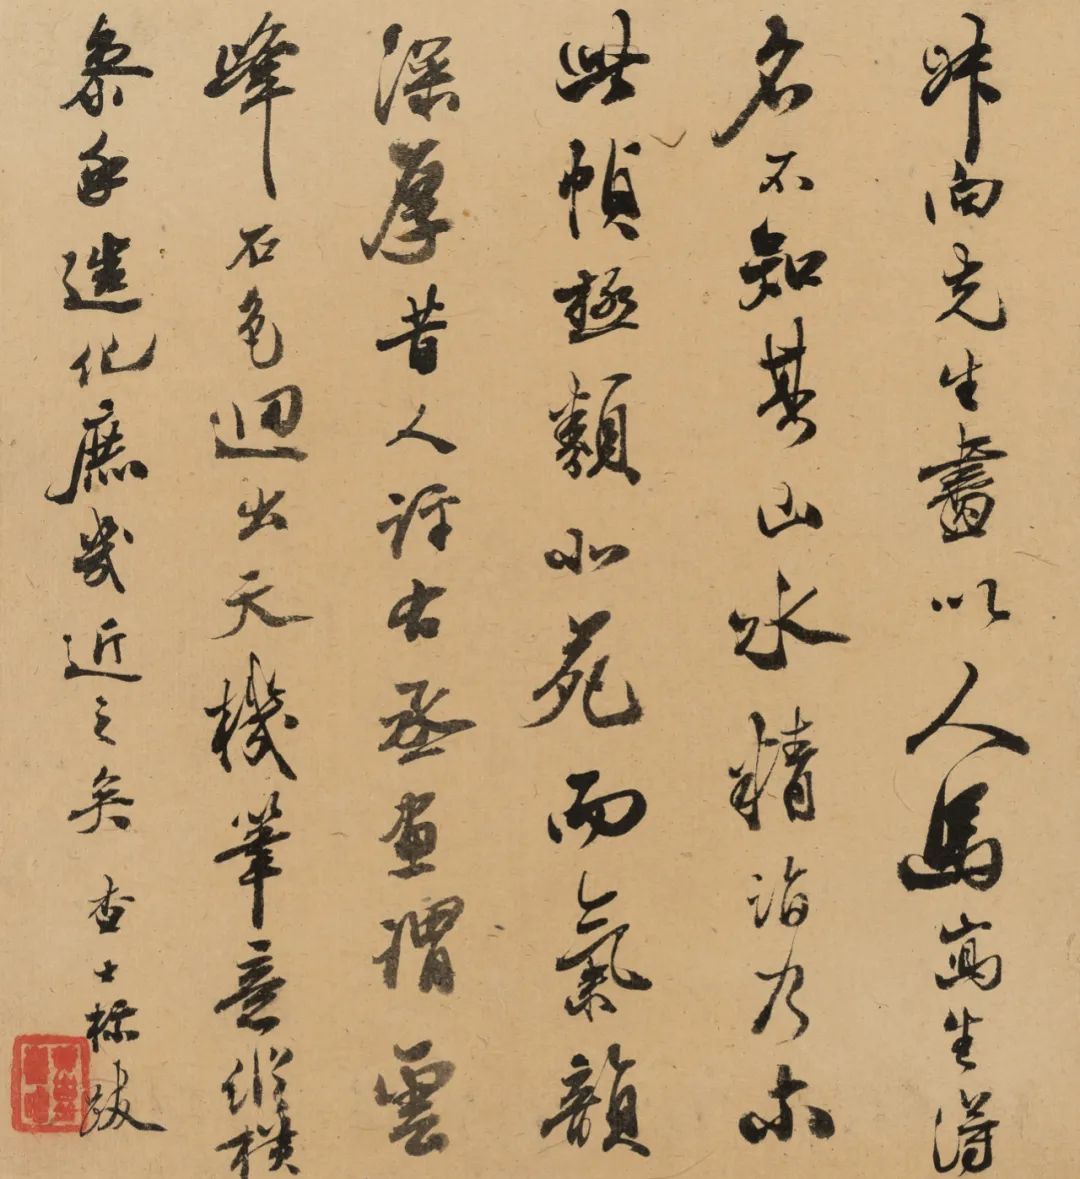 向先生畫以人馬寫生得
名不知其山水精詣乃尔
此幀極類北苑而氣韻
深厚昔人評右丞畫謂雲
峰石色迥出天機筆意縱橫
參乎造化庶幾近之矣 查士標跋